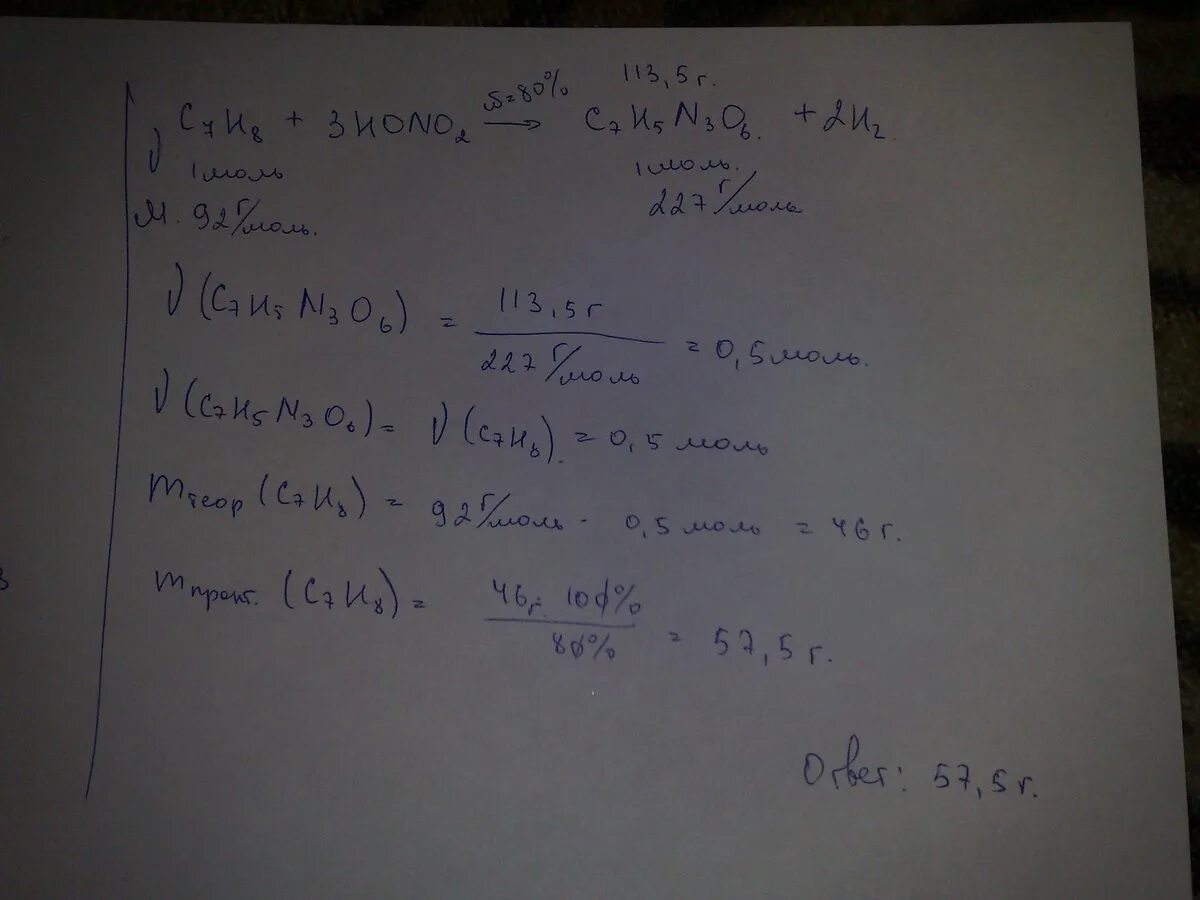 113,5 г.
C₇H₈ + 3HONO₂ →(ω=80%) C₇H₅N₃O₆. + 2H₂
ν 1 моль 1 моль.
M. 92 г/моль. 227 г/моль
ν (C₇H₅N₃O₆) = 113,5 г / 227 г/моль = 0,5 моль.
ν (C₇H₅N₃O₆) = ν (C₇H₈). = 0,5 моль
mтеор (C₇H₈) = 92 г/моль · 0,5 моль = 46 г.
mпракт. (C₇H₈) = 46 г · 100% / 80% = 57,5 г.
Ответ: 57,5 г.